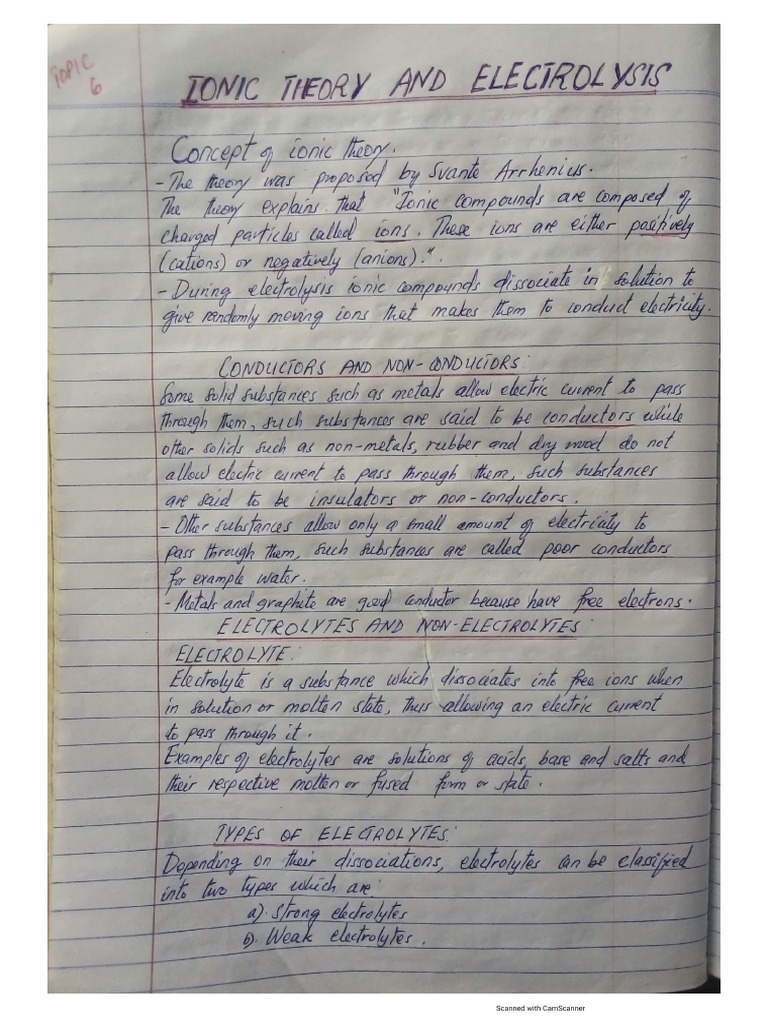 TOPIC
6
IONIC THEORY AND ELECTROLYSIS
Concept of ionic theory.
- The theory was proposed by Svante Arrhenius.
The theory explains that "Ionic compounds are composed of
charged particles called ions. These ions are either positively
(cations) or negatively (anions).".
- During electrolysis ionic compounds dissociate in solution to
give randomly moving ions that makes them to conduct electricity.
CONDUCTORS AND NON-CONDUCTORS:
Some solid substances such as metals allow electric current to pass
through them, such substances are said to be conductors while
other solids such as non-metals, rubber and dry wood do not
allow electric current to pass through them, such substances
are said to be insulators or non-conductors.
- Other substances allow only a small amount of electricity to
pass through them, such substances are called poor conductors
for example water.
- Metals and graphite are good conductor because have free electrons.
ELECTROLYTES AND NON-ELECTROLYTES:
ELECTROLYTE:
Electrolyte is a substance which dissociates into free ions when
in solution or molten state, thus allowing an electric current
to pass through it.
Examples of electrolytes are solutions of acids, base and salts and
their respective molten or fused form or state.
TYPES OF ELECTROLYTES:
Depending on their dissociations, electrolytes can be classified
into two types which are:
a). Strong electrolytes
b). Weak electrolytes.
Scanned with CamScanner